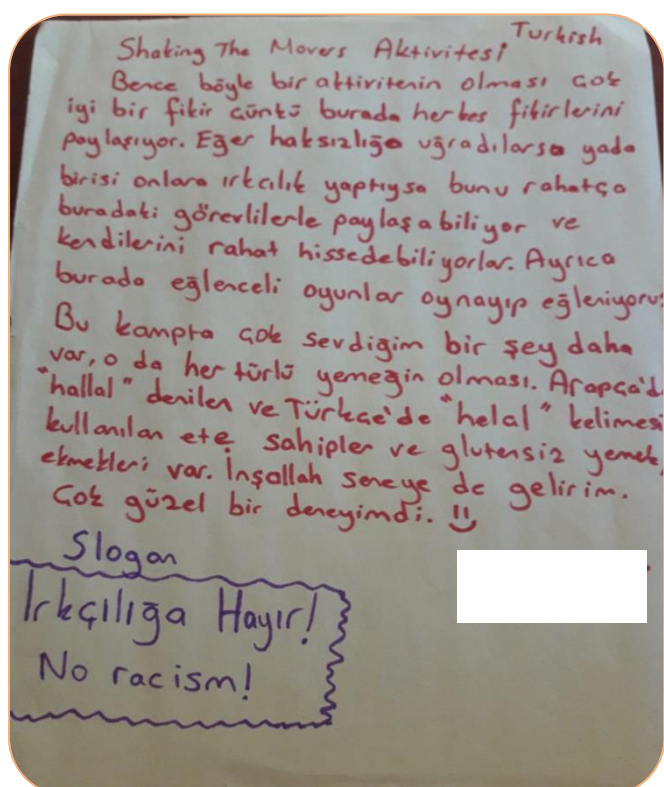 Turkish
Shaking The Movers Aktivitesi
Bence böyle bir aktivitenin olması çok
iyi bir fikir çünkü burada herkes fikirlerini
paylaşıyor. Eğer haksızlığa uğradılarsa yada
birisi onlara ırkcılık yaptıysa bunu rahatça
buradaki görevlilerle paylaşabiliyor ve
kendilerini rahat hissedebiliyorlar. Ayrıca
burada eğlenceli oyunlar oynayıp eğleniyoru
Bu kampta çok sevdiğim bir şey daha
var, o da her türlü yemeğin olması. Arapça'd
"hallal" denilen ve Türkçe'de "helal" kelimes
kullanılan ete sahipler ve glutensiz yemek,
ekmekleri var. İnşallah seneye de gelirim.
Çok güzel bir deneyimdi.
Slogan
Irkçılığa Hayır!
No racism!